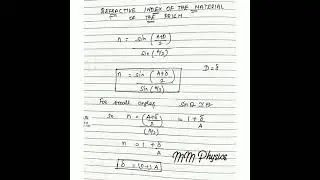 REFRACTIVE INDEX OF THE MATERIAL
OF THE PRISM
n = sin (A+D/2) / sin (A/2)
n = sin (A+δ/2) / sin (A/2)
D = δ
For small angles sin θ ≃ θ
So n = (A+δ/2) / (A/2) = 1 + δ/A
n = 1 + δ/A
δ = (n-1) A
MM Physics